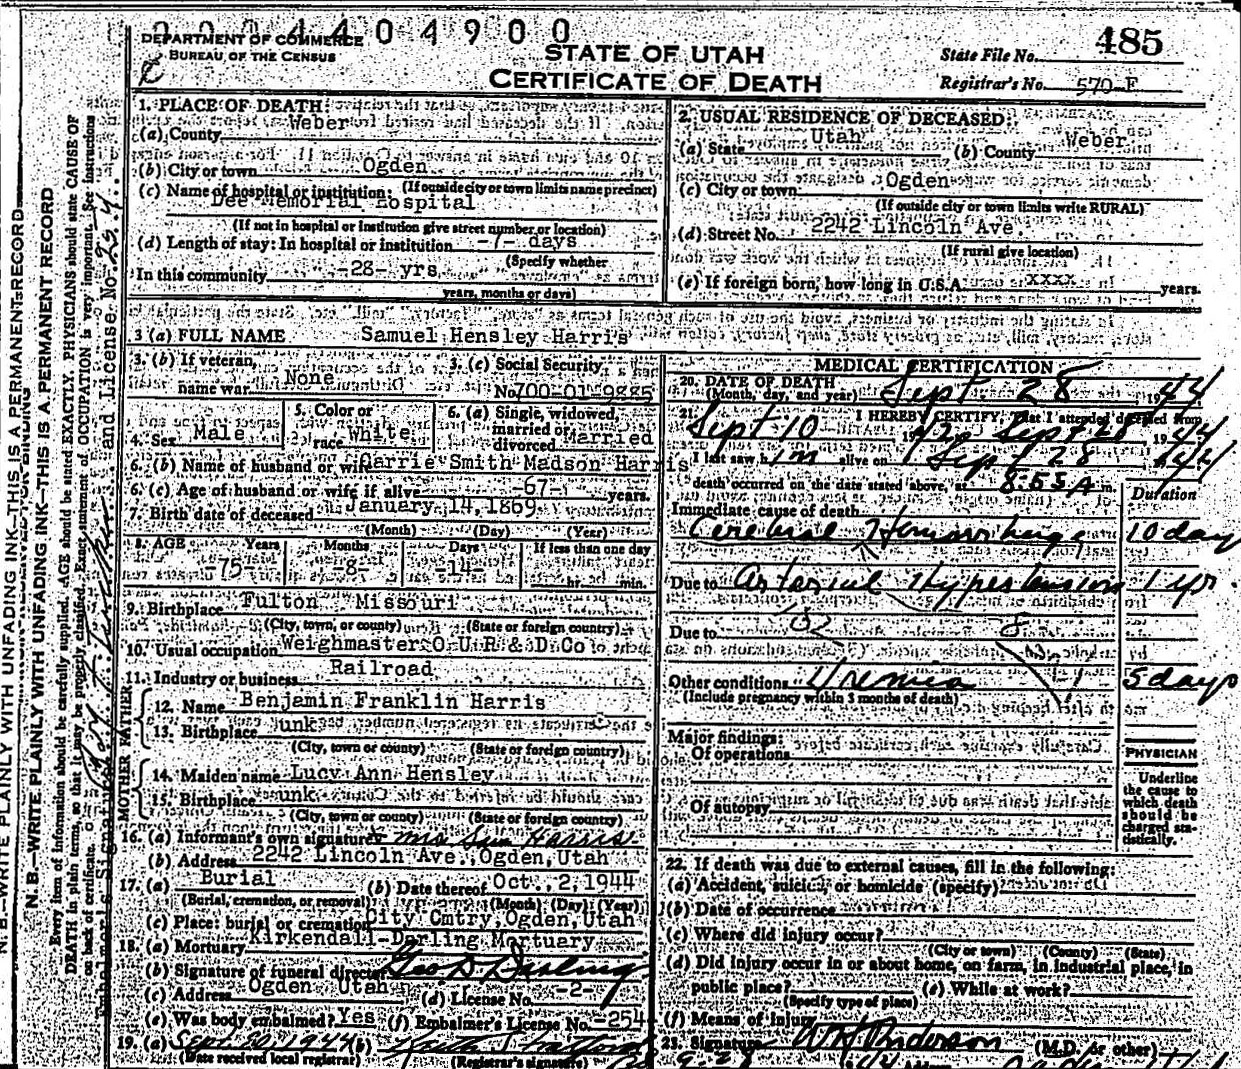 4 0 4 9 0 0
DEPARTMENT OF COMMERCE
BUREAU OF THE CENSUS
STATE OF UTAH
CERTIFICATE OF DEATH
State File No. 485
Registrar's No. 570-F
1. PLACE OF DEATH:
(a) County Weber
(b) City or town Ogden
(c) Name of hospital or institution: (If outside city or town limits name precinct)
Dee Memorial Hospital
(If not in hospital or institution give street number or location)
(d) Length of stay: In hospital or institution days
(Specify whether
In this community -28- yrs
years, months or days)
2. USUAL RESIDENCE OF DECEASED:
(a) State Utah (b) County Weber
(c) City or town Ogden
(If outside city or town limits write RURAL)
(d) Street No. 2242 Lincoln Ave
(If rural give location)
(e) If foreign born, how long in U.S.A. xxxx years.
3 (a) FULL NAME Samuel Hensley Harris
3. (b) If veteran,
name war None
3. (c) Social Security
No. 700-01-9885
4. Sex Male
5. Color or
race White
6. (a) Single, widowed,
married or
divorced Married
6. (b) Name of husband or wife Carrie Smith Madson Harris
6. (c) Age of husband or wife if alive -67- years.
7. Birth date of deceased January 14, 1869
(Month) (Day) (Year)
8. AGE Years Months Days If less than one day
-75- -8- -14- hr. min.
9. Birthplace Fulton Missouri
(City, town, or county) (State or foreign country)
10. Usual occupation Weighmaster O U R & D Co
11. Industry or business Railroad
FATHER
12. Name Benjamin Franklin Harris
13. Birthplace unk
(City, town or county) (State or foreign country)
MOTHER
14. Maiden name Lucy Ann Hensley
15. Birthplace unk
(City, town or county) (State or foreign country)
16. (a) Informant's own signature Mrs Sam Harris
(b) Address 2242 Lincoln Ave., Ogden, Utah
17. (a) Burial (b) Date thereof Oct., 2, 1944
(Burial, cremation, or removal) (Month) (Day) (Year)
(c) Place: burial or cremation City Cmtry, Ogden, Utah
18. (a) Mortuary Kirkendall-Darling Mortuary
(b) Signature of funeral director Geo D. Darling
(c) Address Ogden Utah (d) License No. -2-
(e) Was body embalmed? Yes (f) Embalmer's License No. -254
19. (a) Sept. 30, 1944 (b)
(Date received local registrar) (Registrar's signature)
MEDICAL CERTIFICATION
20. DATE OF DEATH
(Month, day, and year) Sept 28 1944
21. I HEREBY CERTIFY, that I attended deceased from
Sept 10 Sept 28 1944
I last saw him alive on Sept 28 1944
death occurred on the date stated above, at 8:55 A m.
Duration
Immediate cause of death
Cerebral Hemorrhage 10 days
Due to Arterial Hypertension 1 yr.
Due to
Other conditions Uremia 5 days
(Include pregnancy within 3 months of death)
Major findings:
Of operations
Of autopsy
PHYSICIAN
Underline
the cause to
which death
should be
charged sta-
tistically.
22. If death was due to external causes, fill in the following:
(a) Accident, suicide, or homicide (specify)
(b) Date of occurrence
(c) Where did injury occur?
(City or town) (County) (State)
(d) Did injury occur in or about home, on farm, in industrial place, in
public place? (e) While at work?
(Specify type of place)
(f) Means of injury
23. Signature Anderson (M.D. or other)
N. B.—WRITE PLAINLY WITH UNFADING INK—THIS IS A PERMANENT RECORD
N. B.—WRITE PLAINLY WITH UNFADING INK—THIS IS A PERMANENT RECORD
Every item of information should be carefully supplied. AGE should be stated EXACTLY. PHYSICIANS should state CAUSE OF
DEATH in plain terms, so that it may be properly classified. Exact statement of OCCUPATION is very important. See instructions
on back of certificate.
Embalmer's Signature and License No. 254